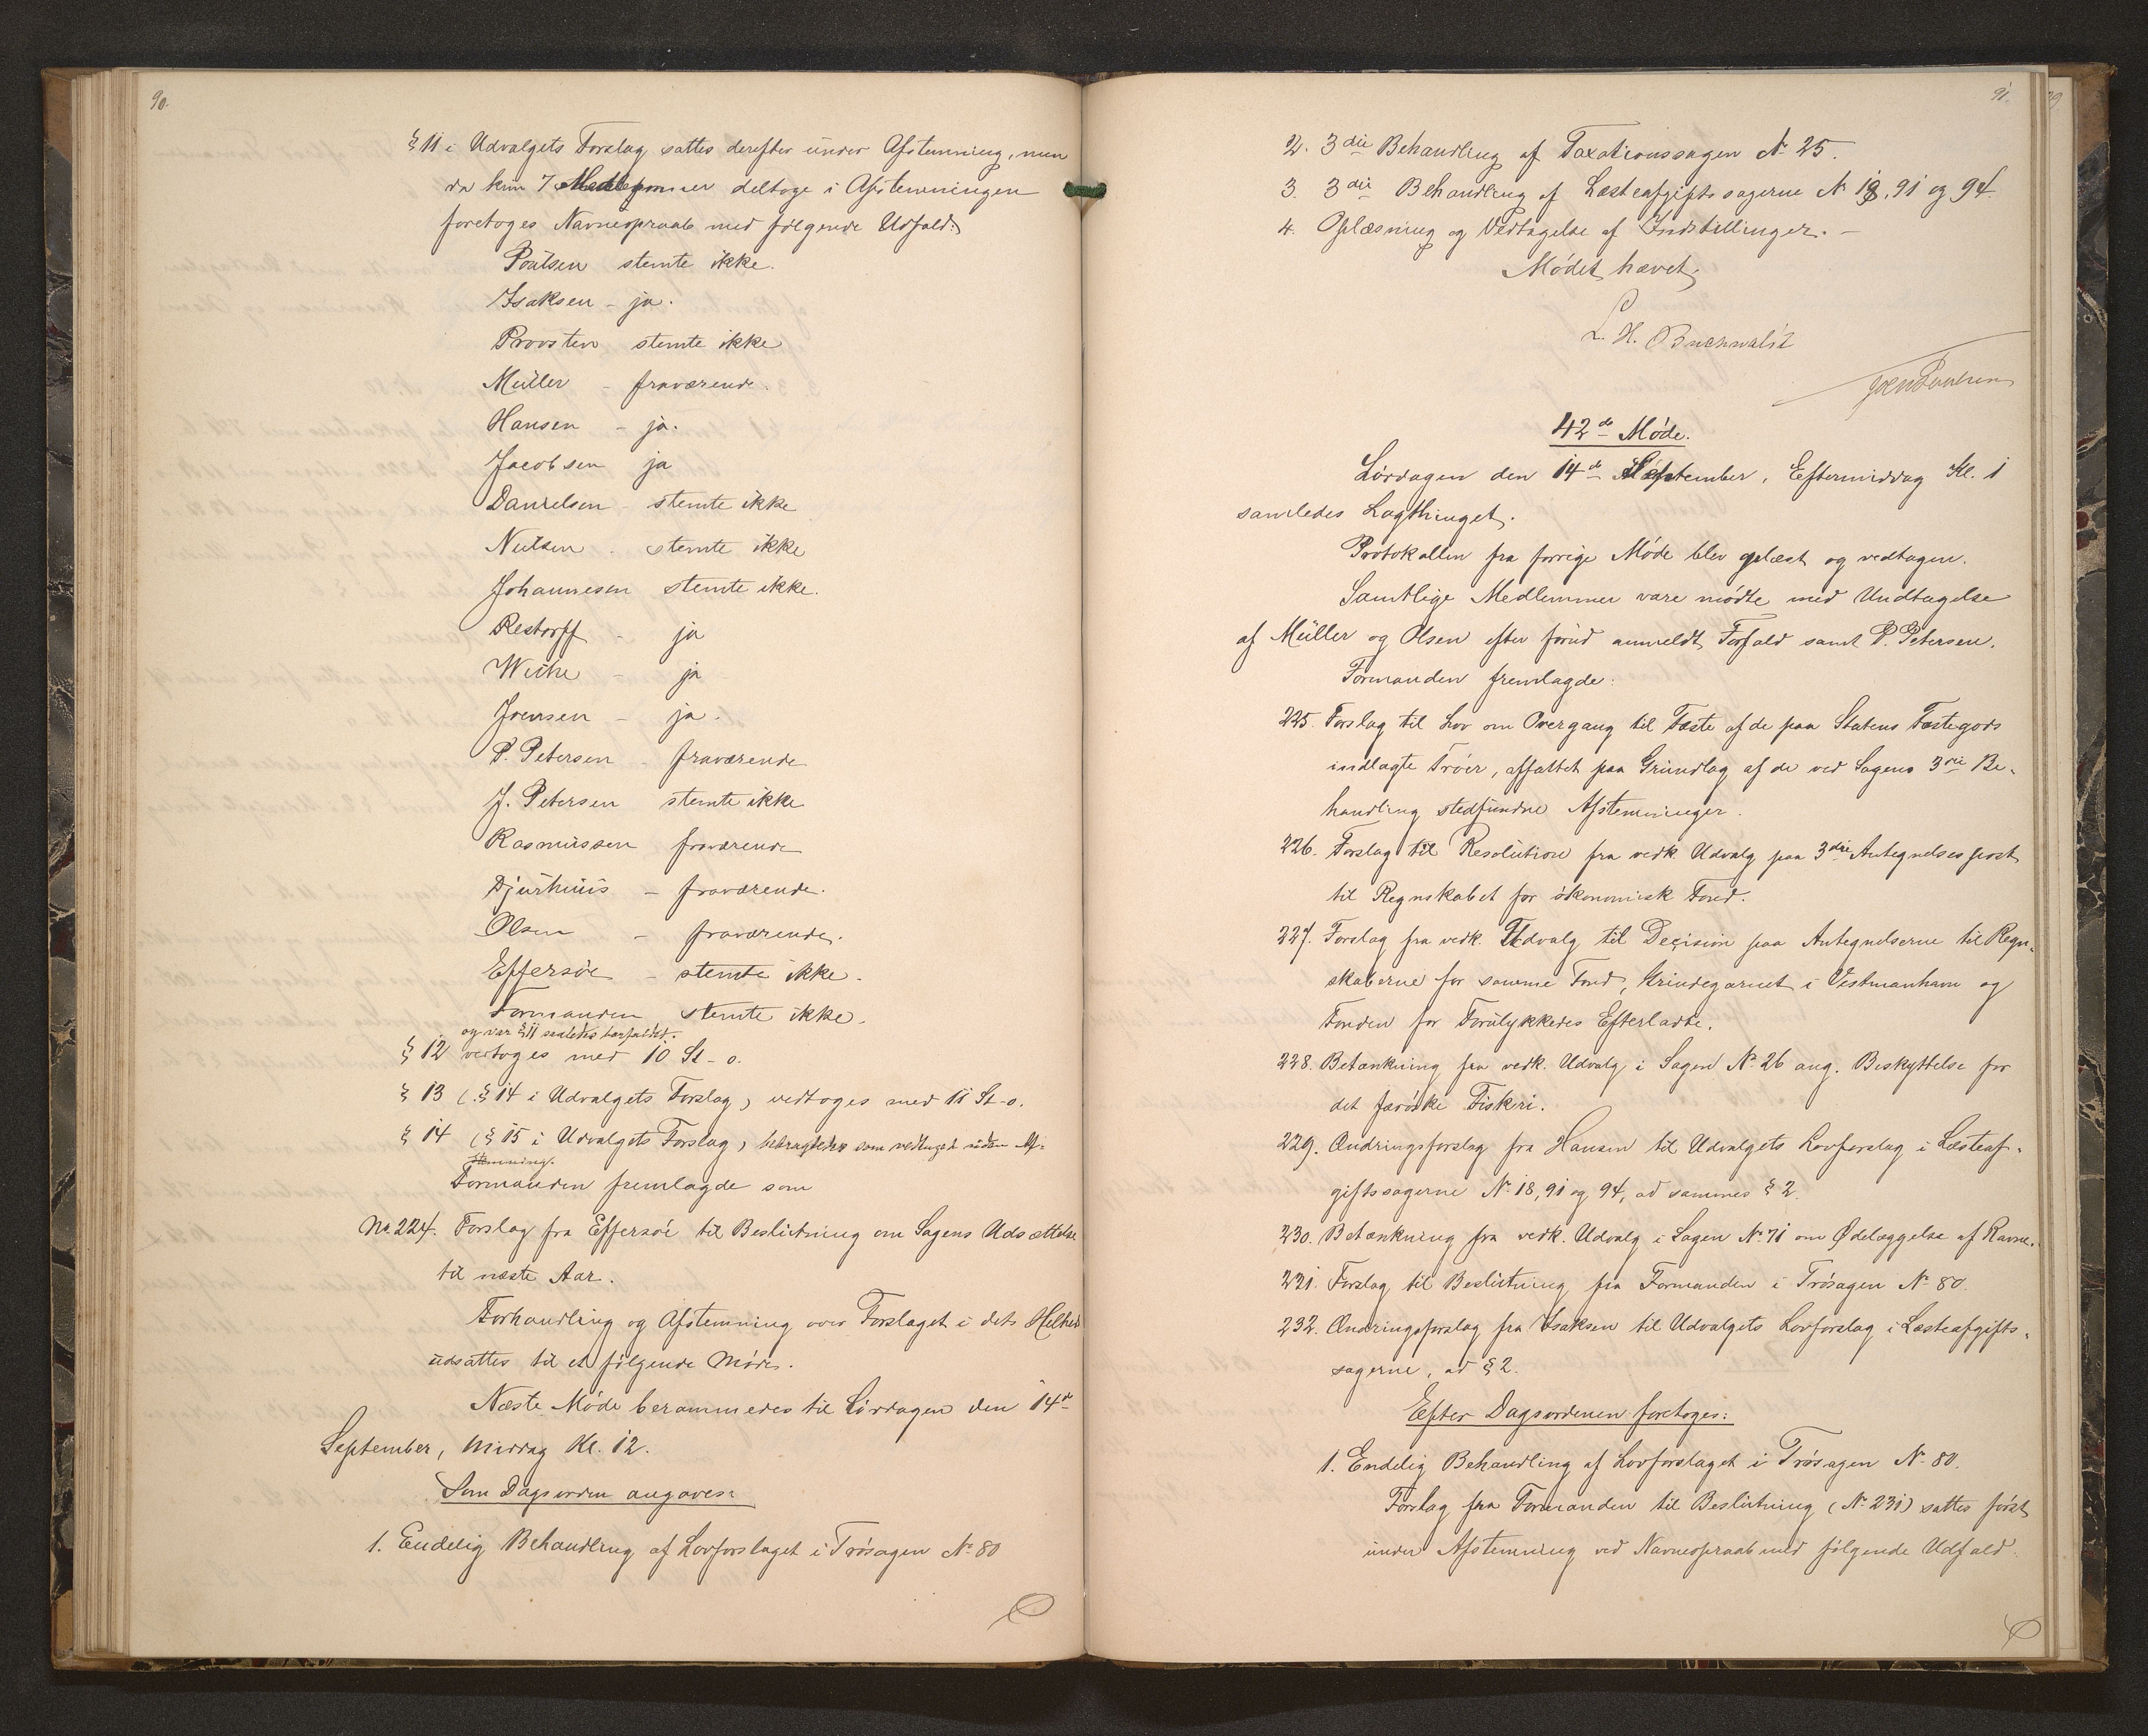 90.
§ 11 i Udvalgets Forslag sattes derefter under Afstemning, men
da kun 7 Medlemmer deltoge i Afstemningen
foretoges Navneopraab med følgende Udfald:
Poulsen stemte ikke.
Isaksen - ja.
Provsten stemte ikke
Müller - fraværende.
Hansen - ja.
Jacobsen ja
Danielsen - stemte ikke
Nielsen . stemte ikke
Johannesen stemte ikke.
Restorff - ja
Weihe - ja
Joensen - ja.
P. Petersen - fraværende
J. Petersen stemte ikke
Rasmussen fraværende
Djurhuus - fraværende.
Olsen - fraværende.
Effersöe - stemte ikke.
Formanden stemte ikke.
og var § 11 saaledes bortfaldet.
§ 12 vedtoges med 10 St - o.
§ 13 (§ 14 i Udvalgets Forslag) vedtoges med 11 St - o.
§ 14 (§ 15 i Udvalgets Forslag) betragtedes som vedtaget uden Af-
stemning.
Formanden fremlagde som
No. 224. Forslag fra Effersöe til Beslutning om Sagens Udsættelse
til næste Aar.
Forhandling og Afstemning over Forslaget i dets Helhed
udsattes til et følgende Møde.
Næste Møde berammedes til Lørdagen den 14de
September, Middag Kl. 12.
Som Dagsorden angaves:
1. Endelig Behandling af Lovforslaget i Trøsagen No 80
91.
2. 3die Behandling af Taxationssagen No 25.
3. 3die Behandling af Læsteafgiftssagerne No 18, 91 og 94.
4. Oplæsning og Vedtagelse af Indstillinger. -
Mødet hævet.
L. H. Buchwaldt
42de Møde.
Lørdagen den 14de September, Eftermiddag Kl. 1
samledes Lagthinget.
Protokollen fra forrige Møde blev oplæst og vedtagen.
Samtlige Medlemmer vare mødte med Undtagelse
af Müller og Olsen efter forud anmeldt Forfald samt P. Petersen.
Formanden fremlagde:
225. Forslag til Lov om Overgang til Fæste af de paa Statens Fæstegods
indlagte Trøer, affattet paa Grundlag af de ved Sagens 3die Be-
handling stedfundne Afstemninger.
226. Forslag til Resolution fra vedk. Udvalg paa 3die Antegnelsespost
til Regnskabet for økonomisk Fond.
227. Forslag fra vedk. Udvalg til Decision paa Antegnelserne til Regn-
skaberne for samme Fond, Grindegarnet i Vestmanhavn og
Fonden for Forulykkedes Efterladte.
228. Betænkning fra vedk. Udvalg i Sagen No 26 ang. Beskyttelse for
det færøske Fiskeri.
229. Ændringsforslag fra Hansen til Udvalgets Lovforslag i Læsteaf-
giftssagerne No 18, 91 og 94, ad sammes § 2.
230. Betænkning fra vedk. Udvalg i Sagen No 71 om Ødelæggelse af Ravne.
231. Forslag til Beslutning fra Formanden i Trøsagen No 80.
232. Ændringsforslag fra Isaksen til Udvalgets Lovforslag i Læsteafgifts-
sagerne, ad § 2.
Efter Dagsordenen foretoges:
1. Endelig Behandling af Lovforslaget i Trøsagen No 80.
Forslag fra Formanden til Beslutning (No 231) sattes først
under Afstemning ved Navneopraab med følgende Udfald.